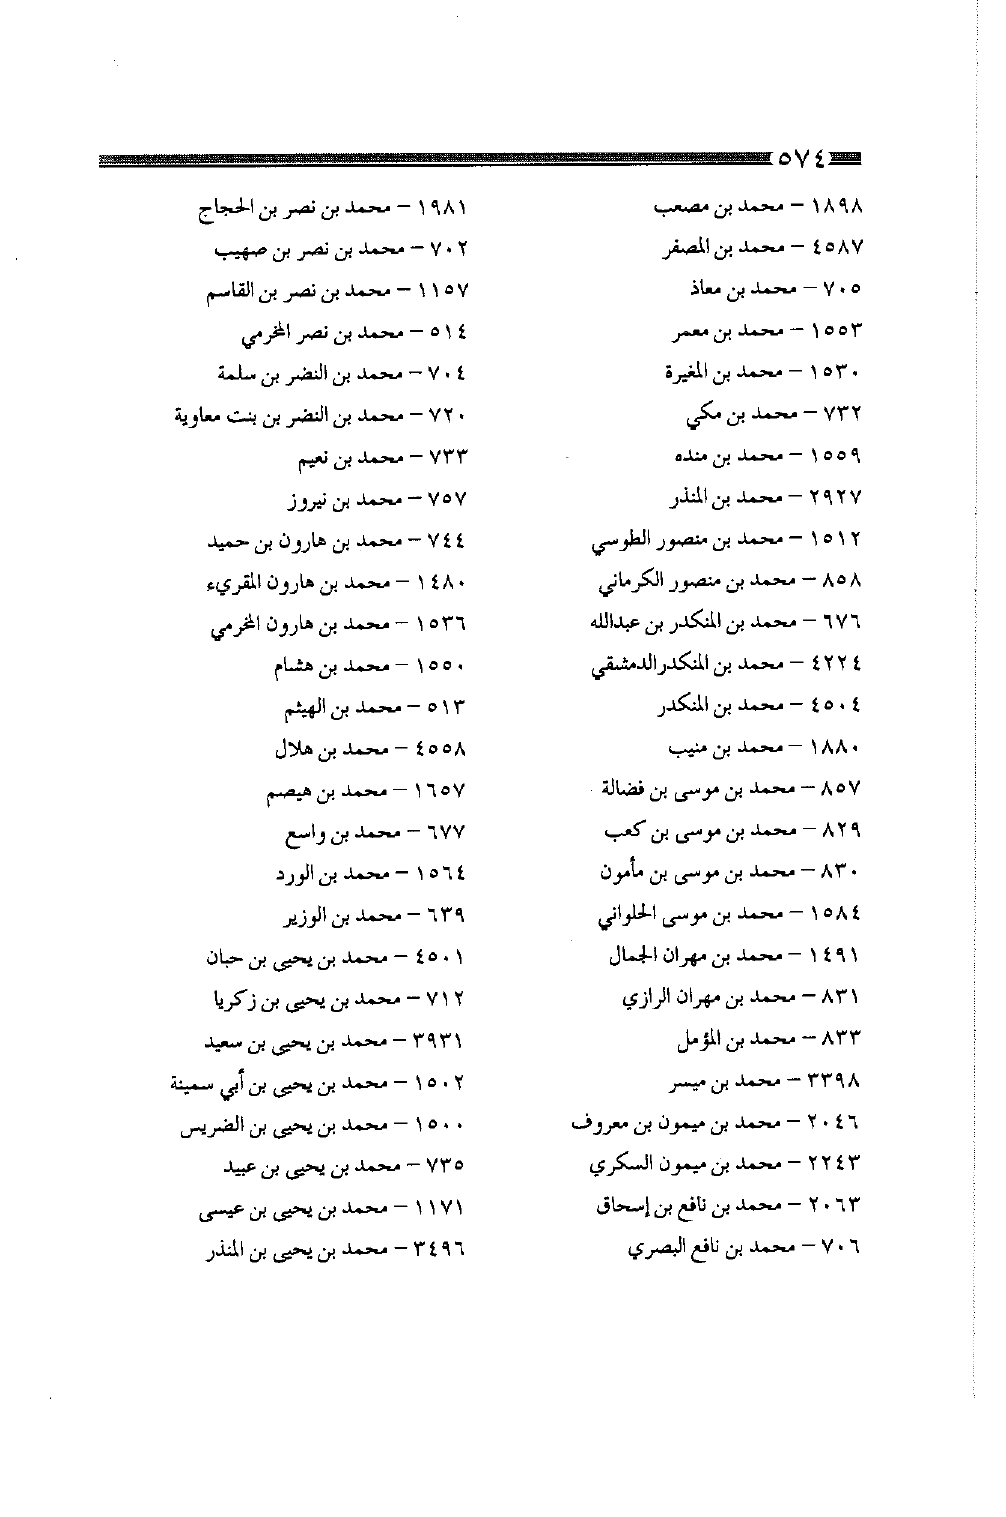 ٥٧٤
١٨٩٨ – محمد بن مصعب
٤٥٨٧ – محمد بن المصفر
٧٠٥ – محمد بن معاذ
١٥٥٣ – محمد بن معمر
١٥٣٠ – محمد بن المغيرة
٧٣٢ – محمد بن مكي
١٥٥٩ – محمد بن منده
٢٩٢٧ – محمد بن المنذر
١٥١٢ – محمد بن منصور الطوسي
٨٥٨ – محمد بن منصور الكرماني
٦٧٦ – محمد بن المنكدر بن عبدالله
٤٢٢٤ – محمد بن المنكدر الدمشقي
٤٥٠٤ – محمد بن المنكدر
١٨٨٠ – محمد بن منيب
٨٥٧ – محمد بن موسى بن فضالة
٨٢٩ – محمد بن موسى بن كعب
٨٣٠ – محمد بن موسى بن مأمون
١٥٨٤ – محمد بن موسى الحلواني
١٤٩١ – محمد بن مهران الجمال
٨٣١ – محمد بن مهران الرازي
٨٣٣ – محمد بن المؤمل
٣٣٩٨ – محمد بن ميسر
٢٠٤٦ – محمد بن ميمون بن معروف
٢٢٤٣ – محمد بن ميمون السكري
٢٠٦٣ – محمد بن نافع بن إسحاق
٧٠٦ – محمد بن نافع البصري
١٩٨١ – محمد بن نصر بن الحجاج
٧٠٢ – محمد بن نصر بن صهيب
١١٥٧ – محمد بن نصر بن القاسم
٥١٤ – محمد بن نصر المخرمي
٧٠٤ – محمد بن النضر بن سلمة
٧٢٠ – محمد بن النضر بن بنت معاوية
٧٣٣ – محمد بن نعيم
٧٥٧ – محمد بن نيروز
٧٤٤ – محمد بن هارون بن حميد
١٤٨٠ – محمد بن هارون المقريء
١٥٣٦ – محمد بن هارون المخرمي
١٥٥٠ – محمد بن هشام
٥١٣ – محمد بن الهيثم
٤٥٥٨ – محمد بن هلال
١٦٥٧ – محمد بن هيصم
٦٧٧ – محمد بن واسع
١٥٦٤ – محمد بن الورد
٦٣٩ – محمد بن الوزير
٤٥٠١ – محمد بن يحيى بن حبان
٧١٢ – محمد بن يحيى بن زكريا
٣٩٣١ – محمد بن يحيى بن سعيد
١٥٠٢ – محمد بن يحيى بن أبي سمينة
١٥٠٠ – محمد بن يحيى بن الضريس
٧٣٥ – محمد بن يحيى بن عبيد
١١٧١ – محمد بن يحيى بن عيسى
٣٤٩٦ – محمد بن يحيى بن المنذر